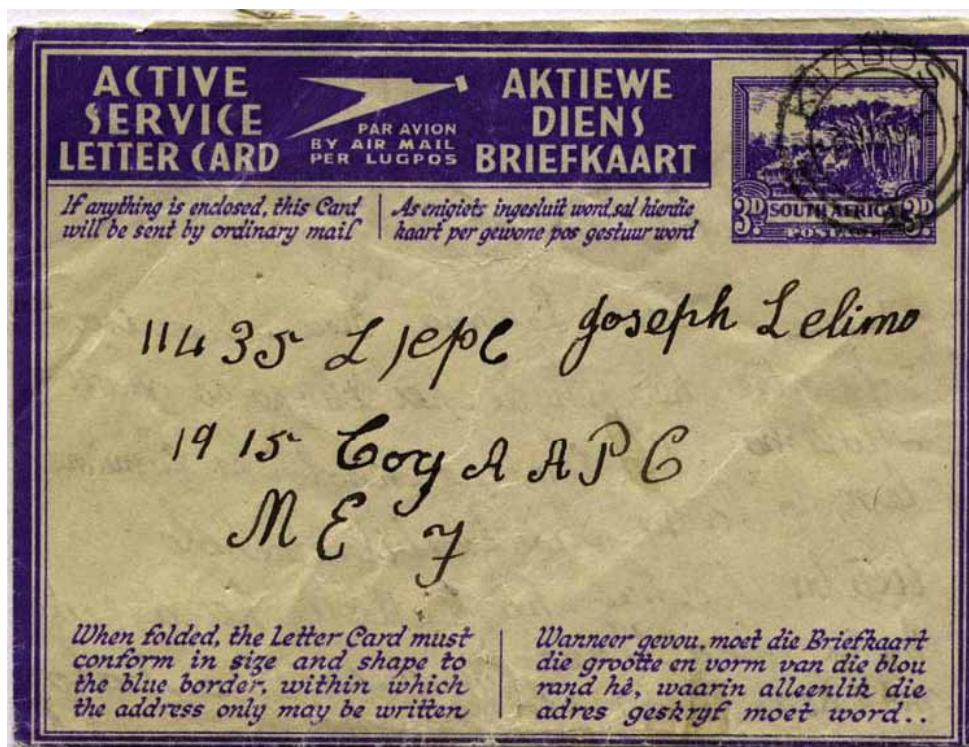 ACTIVE
SERVICE
LETTER CARD
PAR AVION
BY AIR MAIL
PER LUGPOS
AKTIEWE
DIENS
BRIEFKAART
If anything is enclosed, this Card
will be sent by ordinary mail
As enigiets ingesluit word, sal hierdie
kaart per gewone pos gestuur word
3D SOUTH AFRICA 3D
POSTAGE
11435 L/epl Joseph Lelimo
1915 Coy A A P C
M E F
When folded, the Letter Card must
conform in size and shape to
the blue border, within which
the address only may be written
Wanneer gevou, moet die Briefkaart
die grootte en vorm van die blou
rand hê, waarin alleenlik die
adres geskryf moet word..